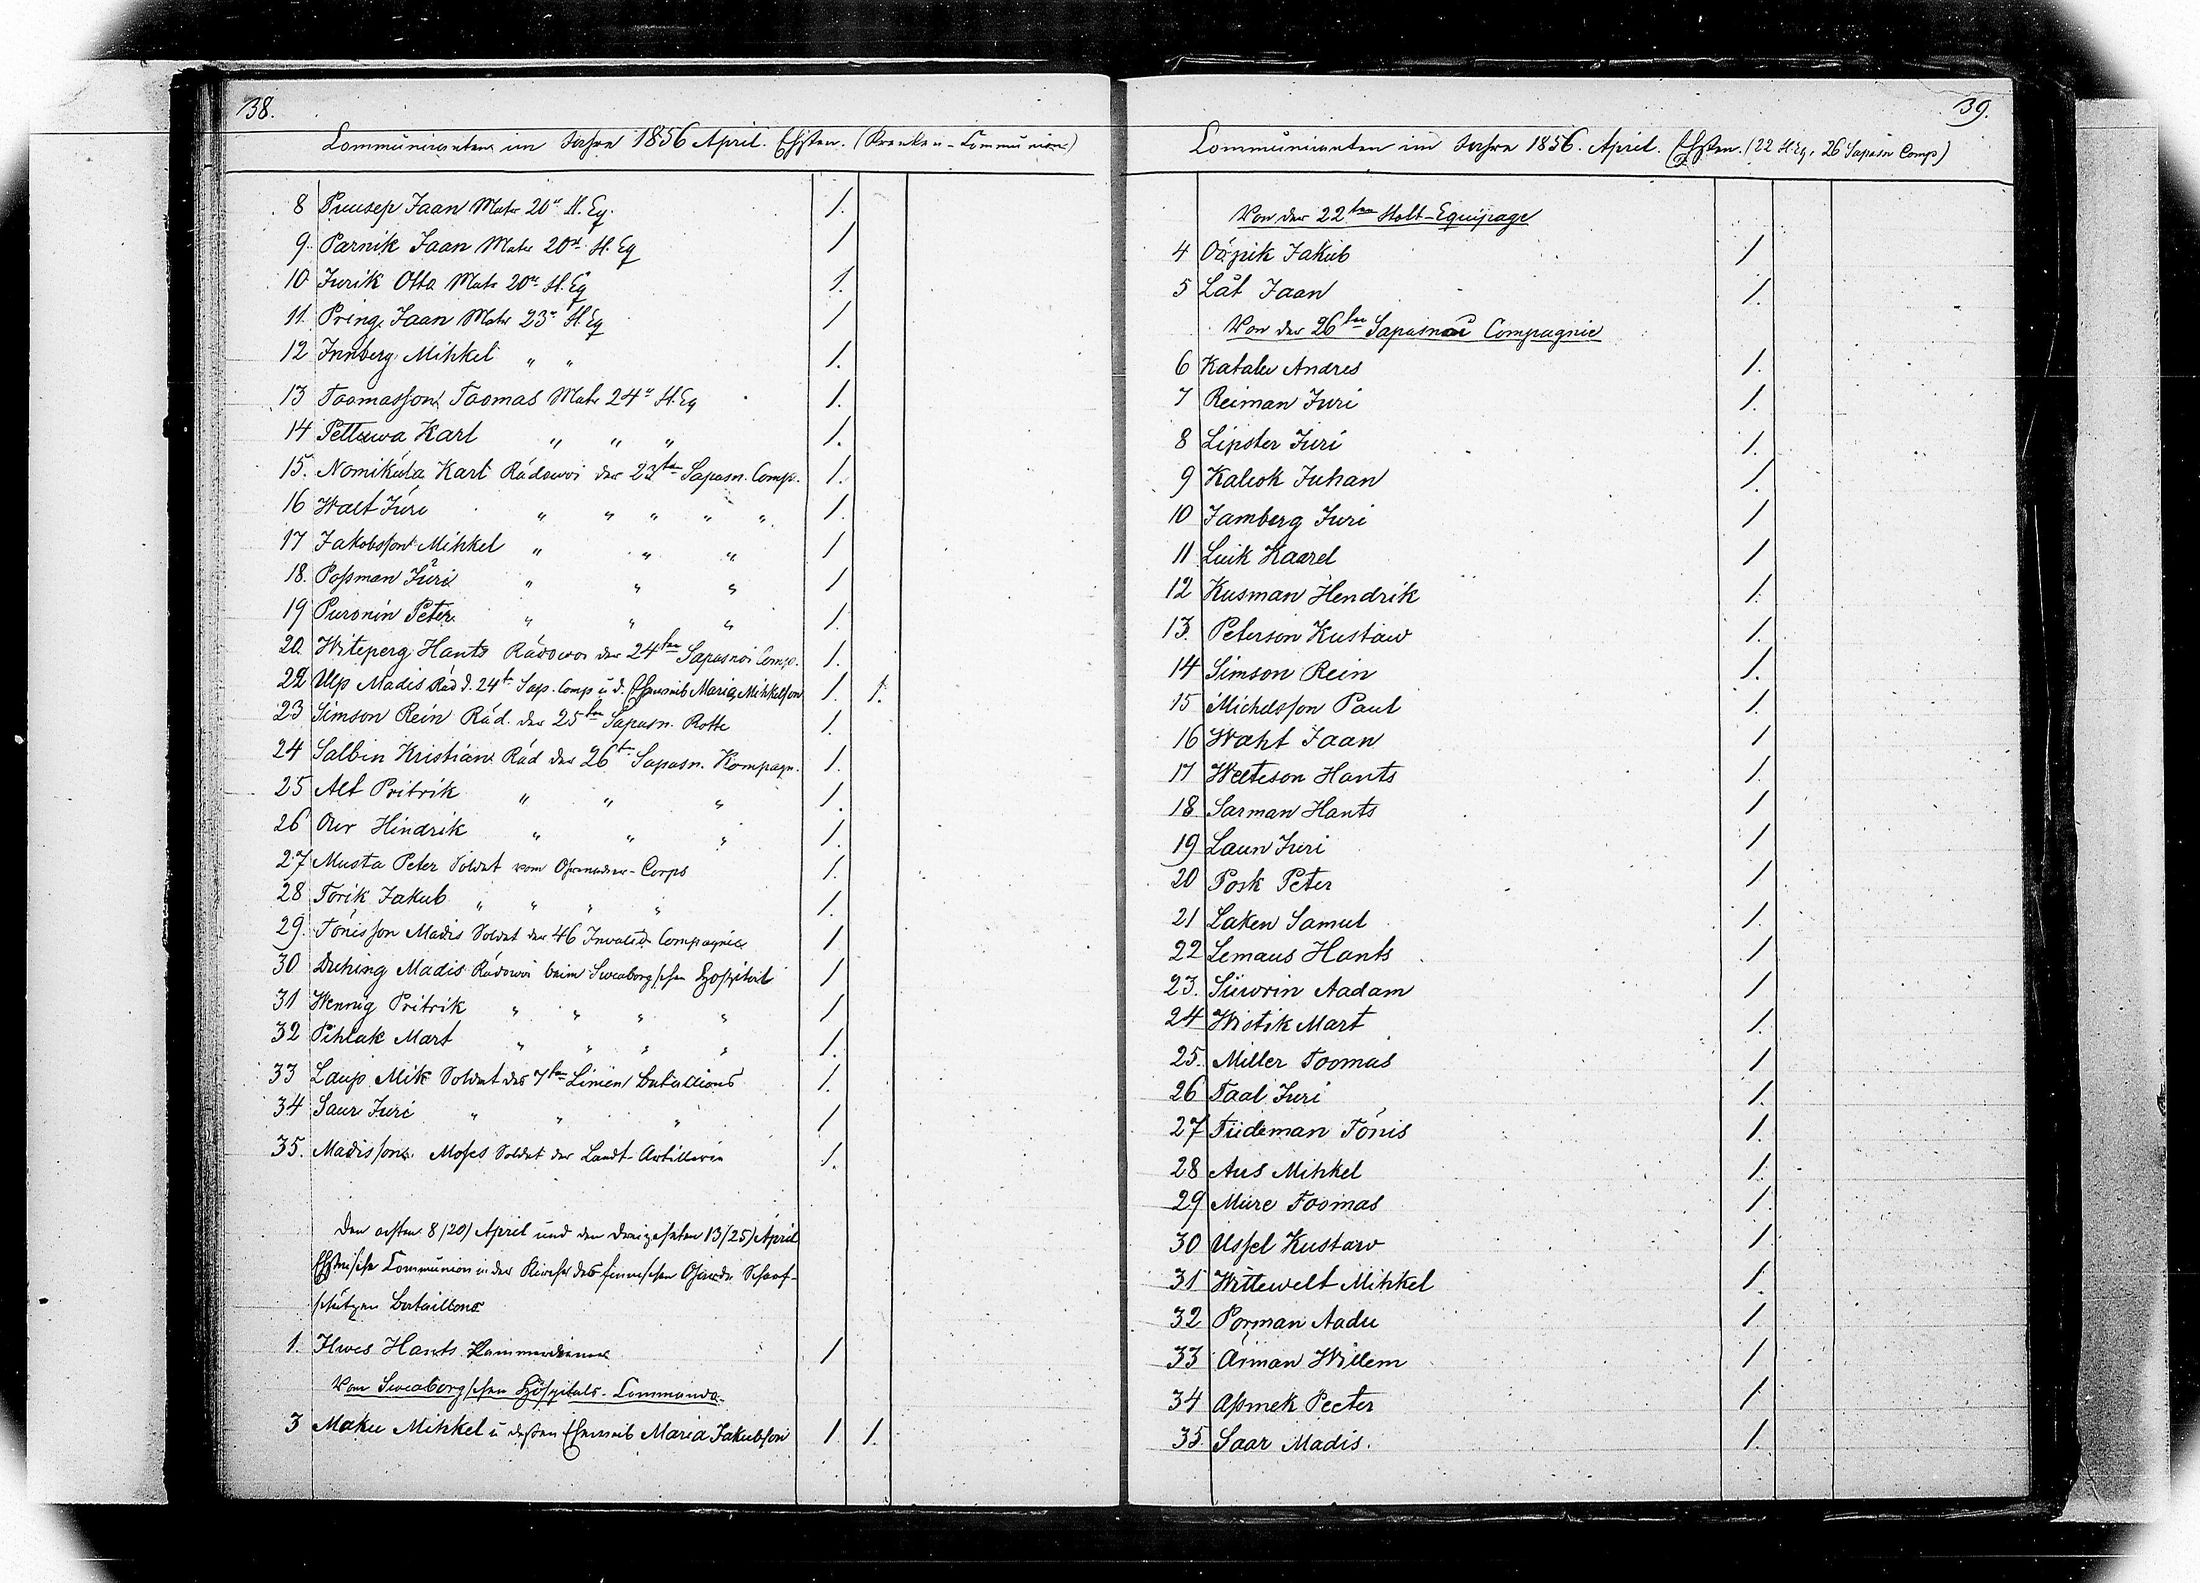 38.
Communicanten im Jahre 1856 April. Ehsten. (Kranken-Communion)
8 Pruusep Jaan Matr 20st H. Eq. 1.
9. Parnik Jaan Matr 20st H. Eq 1
10 Jurik Otto Matr 20st H. Eq 1.
11. Pring Jaan Matr 23st H. Eq 1
12 Innberg Mihkel " " 1.
13 Toomasson Toomas Matr 24st H. Eq 1.
14 Pettuwa Karl " " " 1.
15. Nomikúla Karl Rádowoi der 23ten Sapasn. Comp. 1.
16 Walt Jüri " " " " " 1.
17 Jakobsson Mihkel " " " 1
18. Poßman Jüri " " " 1
19 Puronin Peter " " " 1.
20. Witeperg Hants Rádowoi der 24ten Sapasnoi Comp. 1.
22 Ulp Madis Rád d. 24t Sap. Comp u. d. Eheweib Maria Mihkelson 1. 1.
23 Simson Rein Rád. der 25ten Sapasn. Rotte 1.
24 Salbin Kristian Rád der 26ten Sapasn. Kompagn. 1.
25 Alt Pritrik " " " 1.
26 Orr Hindrik " " " 1.
27 Musta Peter Soldat vom Grenadier-Corps 1.
28 Torik Jakub " " " " 1.
29. Tónisson Madis Soldat der 46 Invalid Compagnie 1
30 Duhing Madis Rádowoi beim Sweaborgschen Hospital 1
31 Wennig Pritrik " " " " 1
32 Pihlak Mart " " " " 1.
33 Laup Mik Soldat des 7ten Linien Bataillons 1.
34 Saur Juri " " " 1
35. Madisson Moses Soldat der Landt-Artillerie 1.
Den achten 8/20) April und den dreizehnten 13/25) April
Ehstnische Communion in der Kirche des finnischen Garde Scharf-
schützen Bataillons
1. Ilwes Hants Kammerdiener 1
Vom Sweaborgschen Hospitals-Commando
3 Maku Mihkel u dessen Eheweib Maria Jakubson 1 1.
39.
Communicanten im Jahre 1856. April. Ehsten. (22 H. Eq. 26 Sapasn Comp)
Von der 22ten Flott-Equipage
4 Oöpik Jakub 1
5 Lät Jaan 1.
Von der 26ten Sapasnoi Compagnie
6 Katale Andres 1.
7 Reiman Juri 1.
8 Lipster Juri 1.
9 Kaliok Juhan 1.
10 Jamberg Juri 1
11 Luik Kaarel 1
12 Kusman Hendrik 1.
13. Peterson Kustaw 1.
14 Simson Rein 1.
15 Michelsson Paul 1.
16 Waht Jaan 1
17 Welteson Hants 1
18 Sarman Hants 1
19 Laun Juri 1
20 Posk Peter 1
21 Laken Samul 1.
22 Lemaus Hants 1
23. Siiwrin Aadam 1
24 Wistik Mart 1.
25. Miller Toomas 1
26 Taal Juri 1.
27 Tiideman Tónis 1.
28 Aus Mihkel 1.
29 Mure Toomas 1.
30 Ussel Kustaw 1
31 Wittewelt Mihkel 1.
32 Porman Aadu 1
33 Arman Willem 1
34 Aßmek Peeter 1
35. Saar Madis. 1.